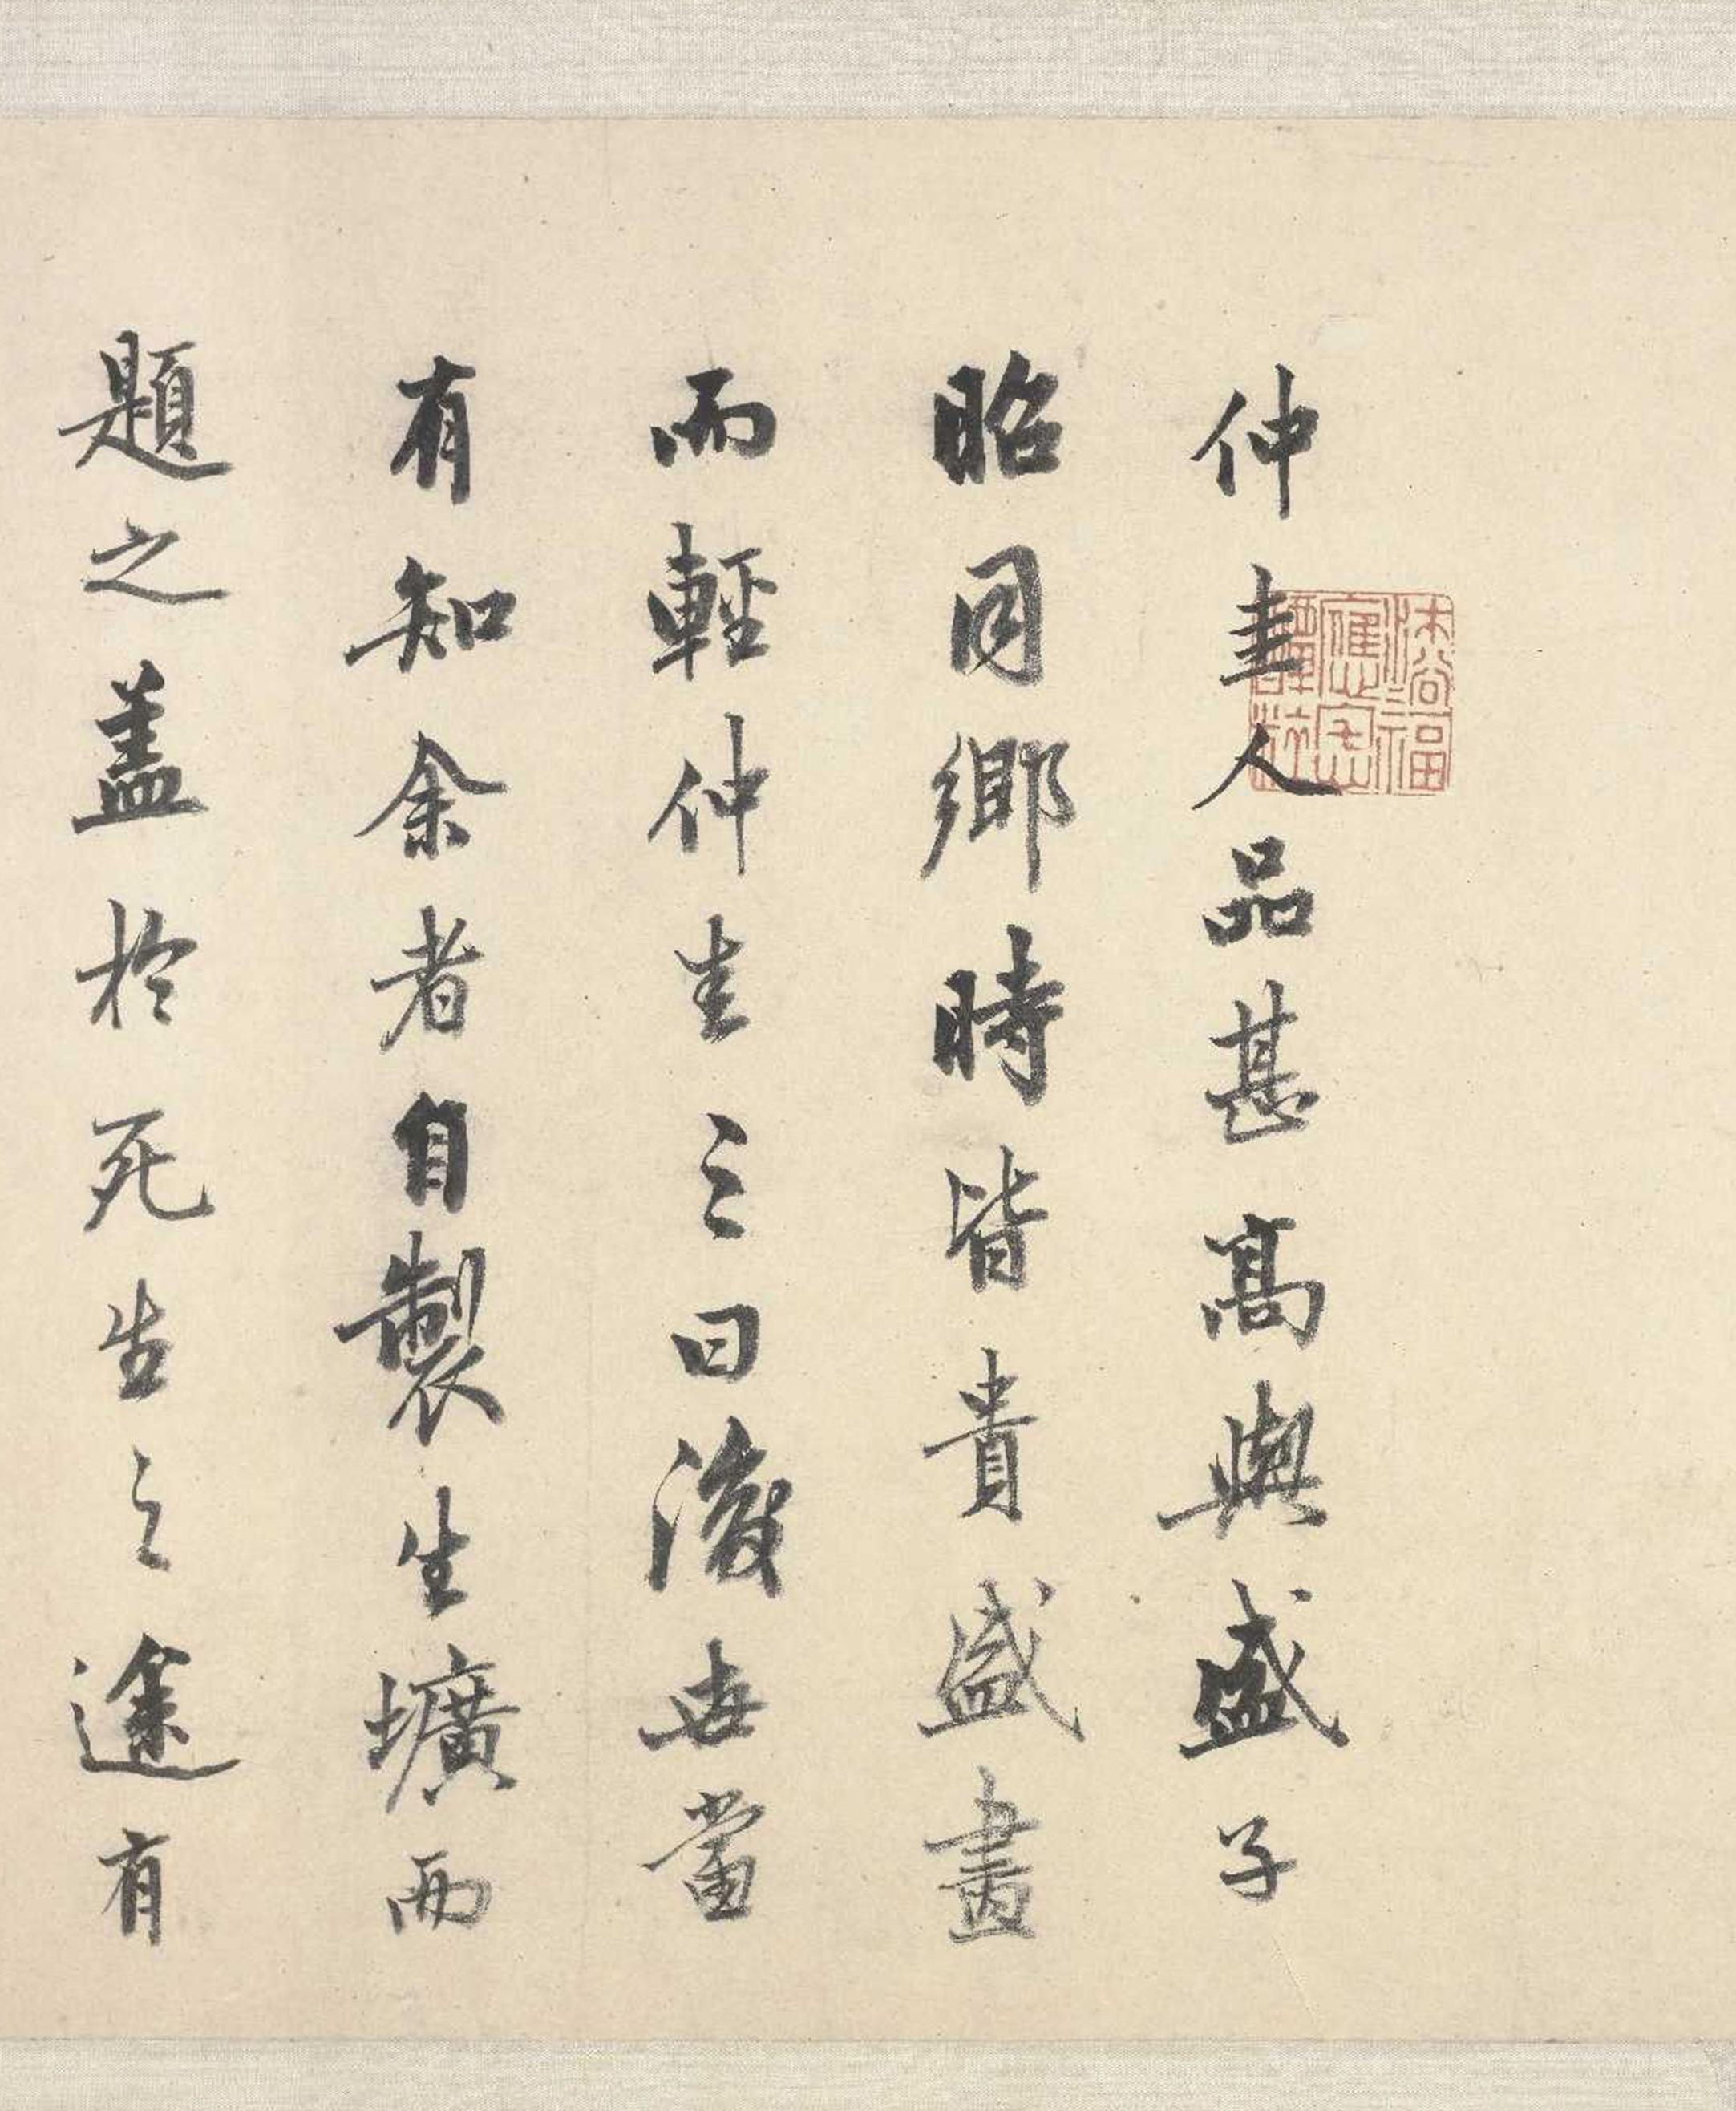 仲圭人品甚高與盛子
昭同鄉時皆貴盛畫
而輕仲圭之曰後世當
有知余者自製生壙而
題之蓋於死生之途有